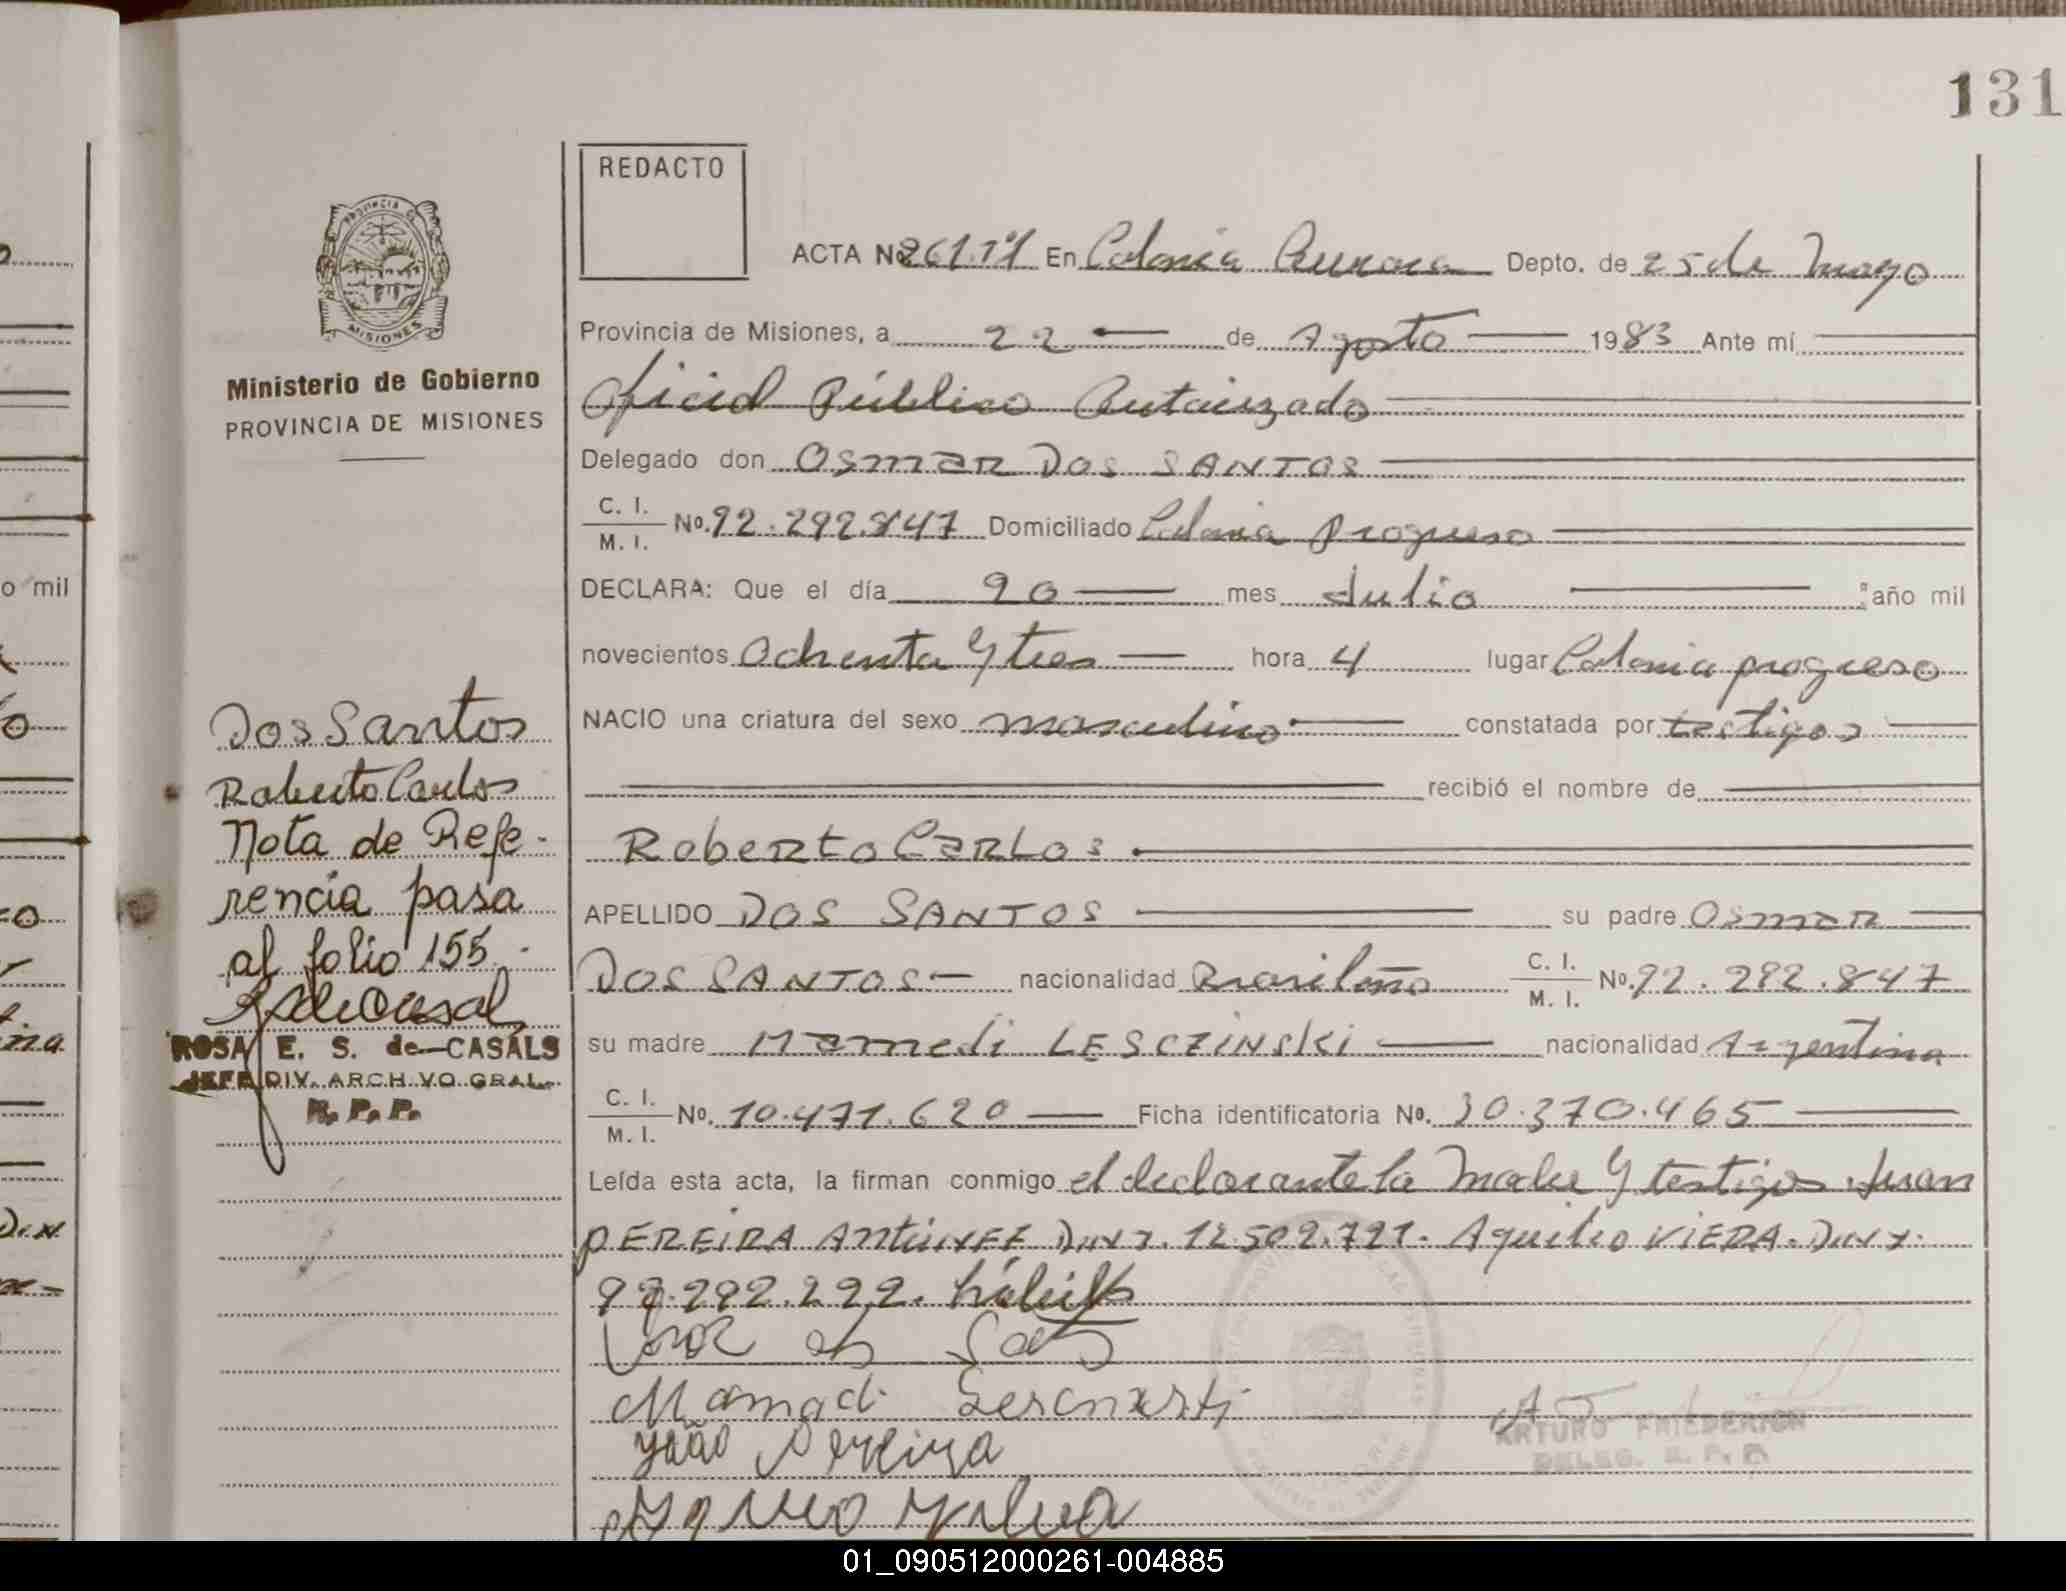 131
REDACTO
ACTA Nº 261.Tº1 En Colonia Aurora Depto. de 25 de Mayo
Provincia de Misiones, a 22 de Agosto 1983 Ante mí
Oficial Público Autorizado
Delegado don OSMAR DOS SANTOS
C. I.
M. I. Nº. 92.292.847 Domiciliado Colonia Progreso
DECLARA: Que el día 20 mes Julio año mil
novecientos Ochenta y tres hora 4 lugar Colonia progreso
NACIO una criatura del sexo masculino constatada por testigos
recibió el nombre de
Roberto Carlos
APELLIDO DOS SANTOS su padre Osmar
DOS SANTOS nacionalidad Brasileño C. I.
M. I. Nº. 92.292.847
su madre Mamedi LESCZINSKI nacionalidad Argentina
C. I.
M. I. Nº. 10.471.620 Ficha identificatoria Nº. 30.370.465
Leída esta acta, la firman conmigo el declarante la Madre y testigos Juan
PEREIRA DNI 12.502.721. Aquileo VIERA. DNI
92.292.222. hábiles
João Pereira
PROVINCIA DE
MISIONES
Ministerio de Gobierno
PROVINCIA DE MISIONES
Dos Santos
Roberto Carlos
Nota de Refe-
rencia pasa
al folio 155.
ROSA E. S. de CASALS
JEFE DIV. ARCHIVO GRAL.
R. P. P.
ARTURO FRIEDERICH
DELEG. R. P. P.
o mil
01_090512000261-004885